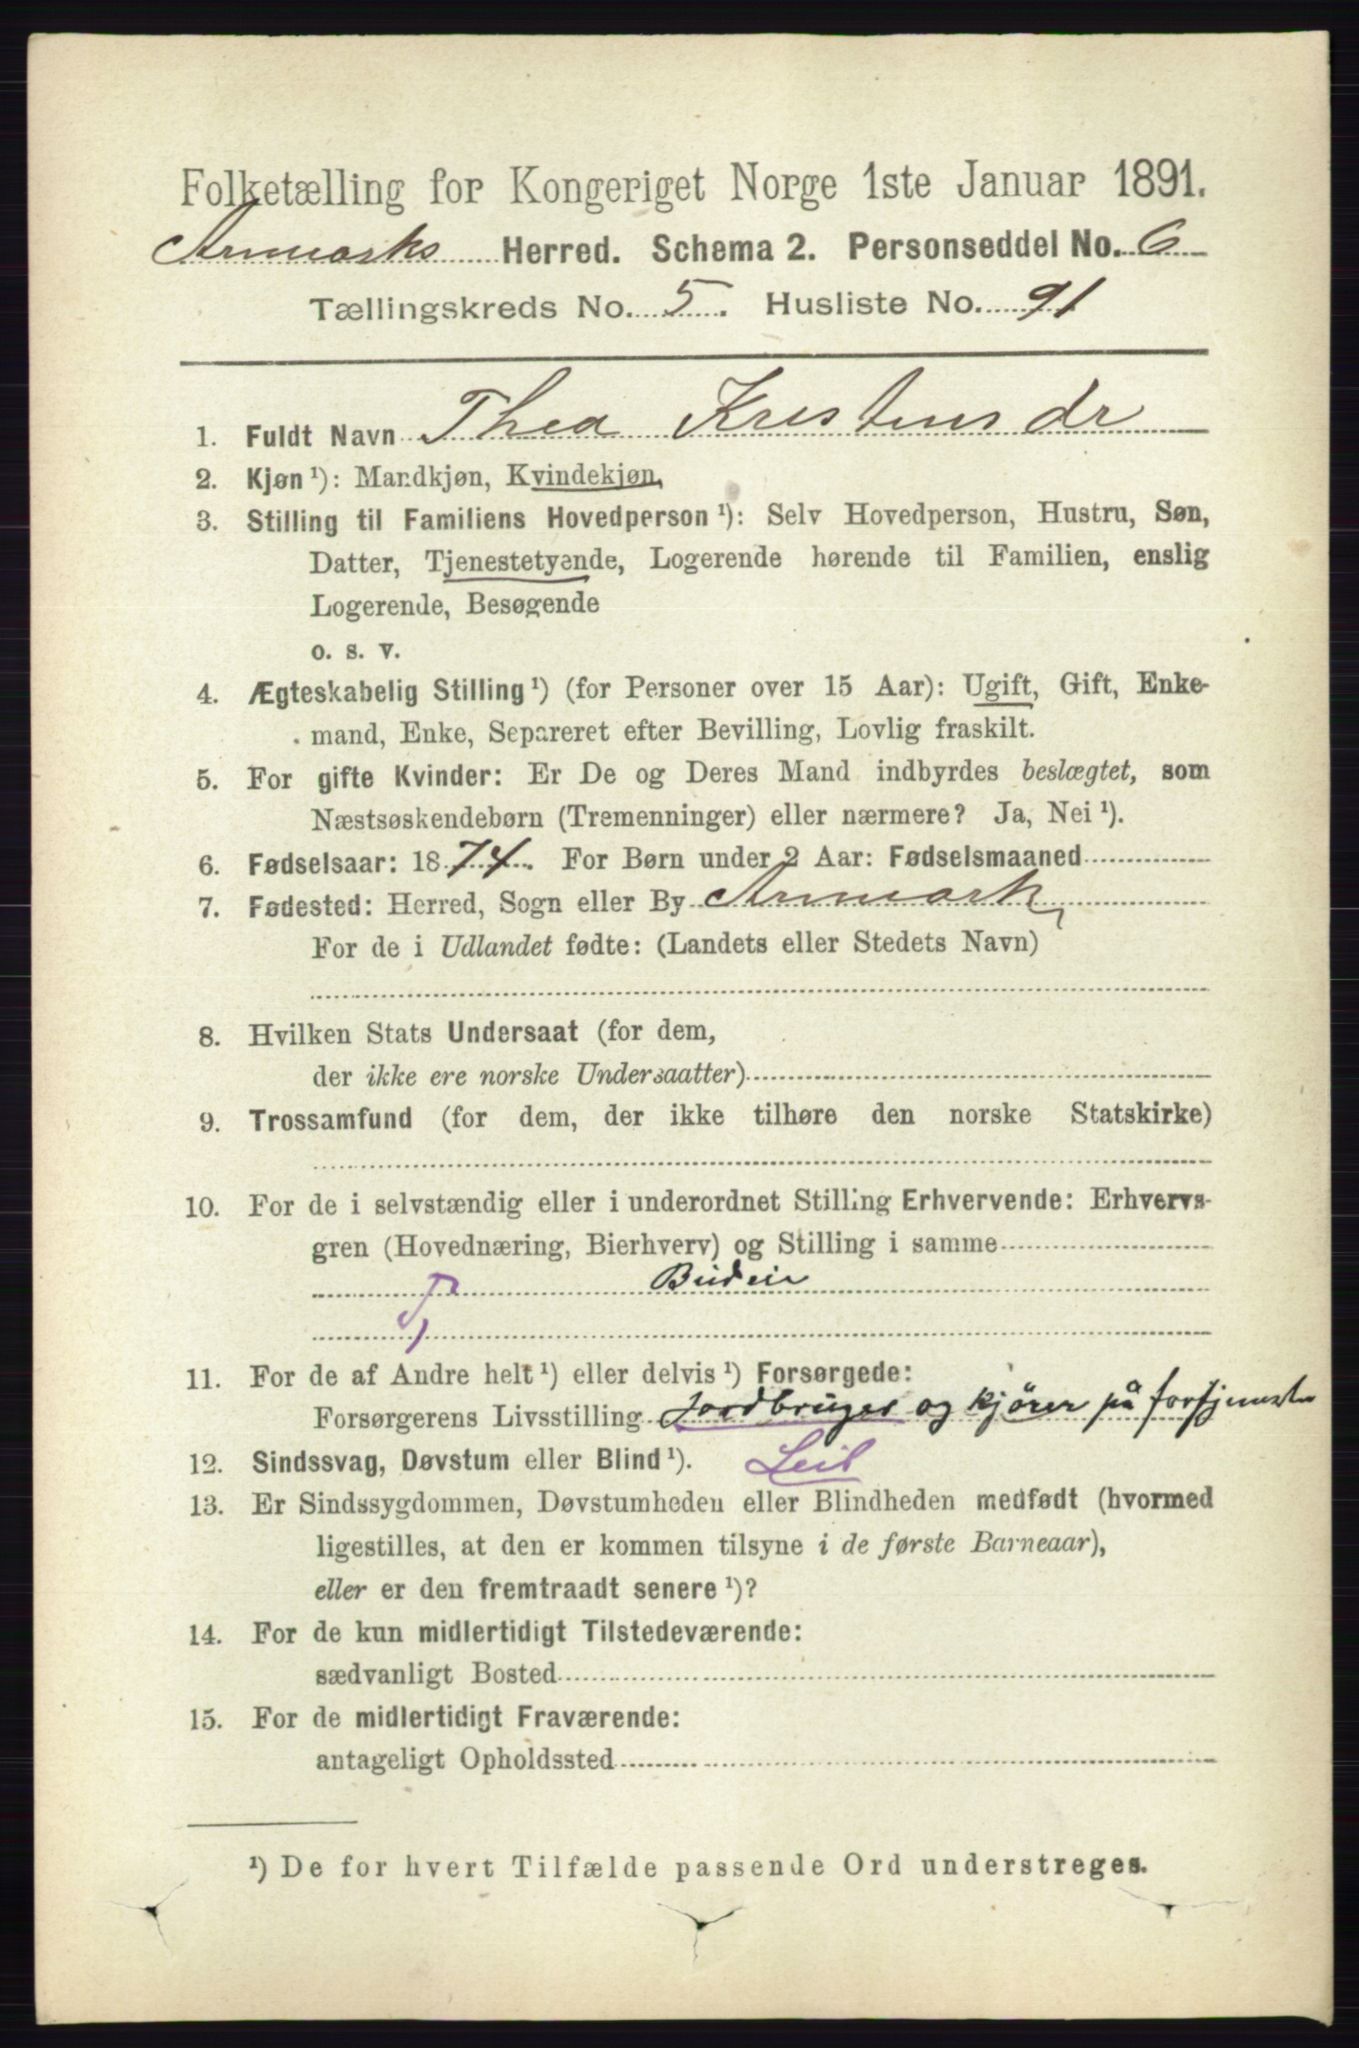 Folketælling for Kongeriget Norge 1ste Januar 1891.
Aremarks Herred. Schema 2. Personseddel No. 6
Tællingskreds No. 5. Husliste No. 91
1. Fuldt Navn Thea Kristensdr
2. Kjøn ¹): Mandkjøn, Kvindekjøn,
3. Stilling til Familiens Hovedperson ¹): Selv Hovedperson, Hustru, Søn,
Datter, Tjenestetyende, Logerende hørende til Familien, enslig
Logerende, Besøgende
o. s. v.
4. Ægteskabelig Stilling ¹) (for Personer over 15 Aar): Ugift, Gift, Enke-
mand, Enke, Separeret efter Bevilling, Lovlig fraskilt.
5. For gifte Kvinder: Er De og Deres Mand indbyrdes beslægtet, som
Næstsøskendebørn (Tremenninger) eller nærmere? Ja, Nei ¹).
6. Fødselsaar: 1874. For Børn under 2 Aar: Fødselsmaaned
7. Fødested: Herred, Sogn eller By Aremark
For de i Udlandet fødte: (Landets eller Stedets Navn)
8. Hvilken Stats Undersaat (for dem,
der ikke ere norske Undersaatter)
9. Trossamfund (for dem, der ikke tilhøre den norske Statskirke)
10. For de i selvstændig eller i underordnet Stilling Erhvervende: Erhvervs-
gren (Hovednæring, Bierhverv) og Stilling i samme
Budeie
11. For de af Andre helt ¹) eller delvis ¹) Forsørgede:
Forsørgerens Livsstilling Jordbruger og kjører på fortjeneste
12. Sindssvag, Døvstum eller Blind ¹). Leil
13. Er Sindssygdommen, Døvstumheden eller Blindheden medfødt (hvormed
ligestilles, at den er kommen tilsyne i de første Barneaar),
eller er den fremtraadt senere ¹)?
14. For de kun midlertidigt Tilstedeværende:
sædvanligt Bosted
15. For de midlertidigt Fraværende:
antageligt Opholdssted
¹) De for hvert Tilfælde passende Ord understreges.